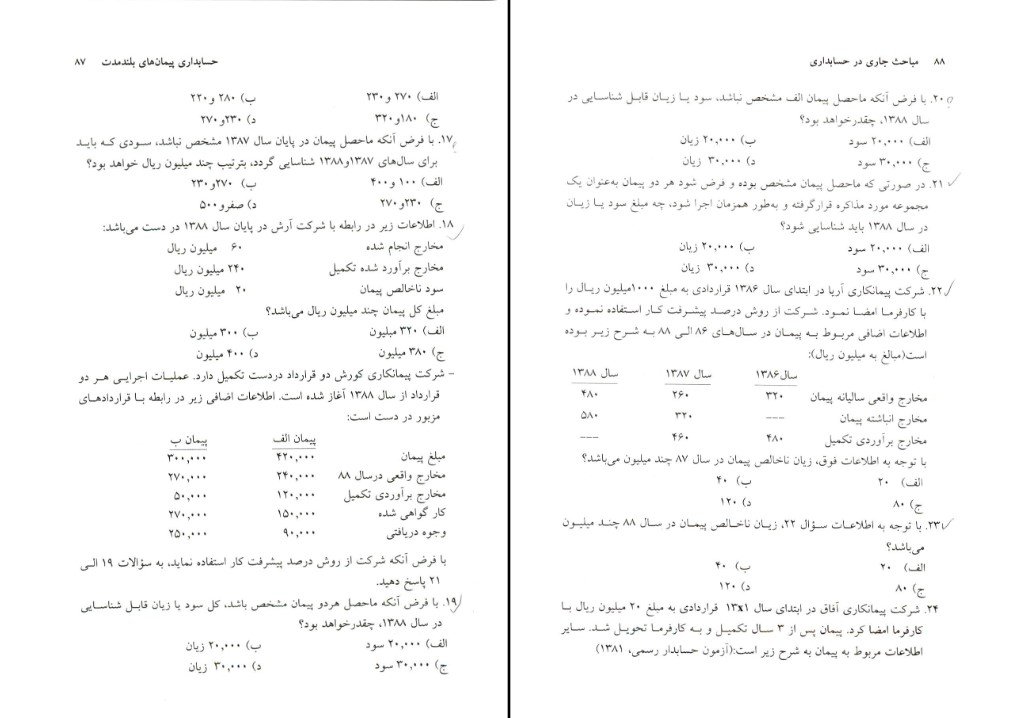 حسابداری پیمان‌های بلندمدت ۸۷
الف) ۲۷۰ و ۲۳۰ ب) ۲۸۰ و ۲۲۰
ج) ۱۸۰و ۳۲۰ د) ۲۳۰و ۲۷۰
۱۷. با فرض آنکه ماحصل پیمان در پایان سال ۱۳۸۷ مشخص نباشد، سودی که باید
برای سال‌های ۱۳۸۷و۱۳۸۸ شناسایی گردد، بترتیب چند میلیون ریال خواهد بود؟
الف) ۱۰۰ و ۴۰۰ ب) ۲۷۰و ۲۳۰
ج) ۲۳۰و ۲۷۰ د) صفرو ۵۰۰
۱۸. اطلاعات زیر در رابطه با شرکت آرش در پایان سال ۱۳۸۸ در دست می‌باشد:
مخارج انجام شده ۶۰ میلیون ریال
مخارج برآورد شده تکمیل ۲۴۰ میلیون ریال
سود ناخالص پیمان ۲۰ میلیون ریال
مبلغ کل پیمان چند میلیون ریال می‌باشد؟
الف) ۳۲۰ میلیون ب) ۳۰۰ میلیون
ج) ۳۸۰ میلیون د) ۴۰۰ میلیون
- شرکت پیمانکاری کورش دو قرارداد دردست تکمیل دارد. عملیات اجرایی هر دو
قرارداد از سال ۱۳۸۸ آغاز شده است. اطلاعات اضافی زیر در رابطه با قراردادهای
مزبور در دست است:
پیمان الف پیمان ب
مبلغ پیمان ۴۲۰,۰۰۰ ۳۰۰,۰۰۰
مخارج واقعی درسال ۸۸ ۲۴۰,۰۰۰ ۲۷۰,۰۰۰
مخارج برآوردی تکمیل ۱۲۰,۰۰۰ ۵۰,۰۰۰
کار گواهی شده ۱۵۰,۰۰۰ ۲۷۰,۰۰۰
وجوه دریافتی ۹۰,۰۰۰ ۲۵۰,۰۰۰
با فرض آنکه شرکت از روش درصد پیشرفت کار استفاده نماید، به سؤالات ۱۹ الی
۲۱ پاسخ دهید.
۱۹. با فرض آنکه ماحصل هردو پیمان مشخص باشد، کل سود یا زیان قابل شناسایی
در سال ۱۳۸۸، چقدرخواهد بود؟
الف) ۲۰,۰۰۰ سود ب) ۲۰,۰۰۰ زیان
ج) ۳۰,۰۰۰ سود د) ۳۰,۰۰۰ زیان
۸۸ مباحث جاری در حسابداری
۲۰. با فرض آنکه ماحصل پیمان الف مشخص نباشد، سود یا زیان قابل شناسایی در
سال ۱۳۸۸، چقدرخواهد بود؟
الف) ۲۰,۰۰۰ سود ب) ۲۰,۰۰۰ زیان
ج) ۳۰,۰۰۰ سود د) ۳۰,۰۰۰ زیان
۲۱. در صورتی که ماحصل پیمان مشخص بوده و فرض شود هر دو پیمان به‌عنوان یک
مجموعه مورد مذاکره قرارگرفته و به‌طور همزمان اجرا شود، چه مبلغ سود یا زیان
در سال ۱۳۸۸ باید شناسایی شود؟
الف) ۲۰,۰۰۰ سود ب) ۲۰,۰۰۰ زیان
ج) ۳۰,۰۰۰ سود د) ۳۰,۰۰۰ زیان
۲۲. شرکت پیمانکاری آریا در ابتدای سال ۱۳۸۶ قراردادی به مبلغ ۱۰۰۰میلیون ریال را
با کارفرما امضا نمود. شرکت از روش درصد پیشرفت کار استفاده نموده و
اطلاعات اضافی مربوط به پیمان در سال‌های ۸۶ الی ۸۸ به شرح زیر بوده
است(مبالغ به میلیون ریال):
سال۱۳۸۶ سال ۱۳۸۷ سال ۱۳۸۸
مخارج واقعی سالیانه پیمان ۳۲۰ ۲۶۰ ۴۸۰
مخارج انباشته پیمان --- ۳۲۰ ۵۸۰
مخارج برآوردی تکمیل ۴۸۰ ۴۶۰ ---
با توجه به اطلاعات فوق، زیان ناخالص پیمان در سال ۸۷ چند میلیون می‌باشد؟
الف) ۲۰ ب) ۴۰
ج) ۸۰ د) ۱۲۰
۲۳. با توجه به اطلاعات سؤال ۲۲، زیان ناخالص پیمان در سال ۸۸ چند میلیون
می‌باشد؟
الف) ۲۰ ب) ۴۰
ج) ۸۰ د) ۱۲۰
۲۴. شرکت پیمانکاری آفاق در ابتدای سال ۱۳x۱ قراردادی به مبلغ ۲۰ میلیون ریال با
کارفرما امضا کرد. پیمان پس از ۳ سال تکمیل و به کارفرما تحویل شد. سایر
اطلاعات مربوط به پیمان به شرح زیر است:(آزمون حسابدار رسمی، ۱۳۸۱)